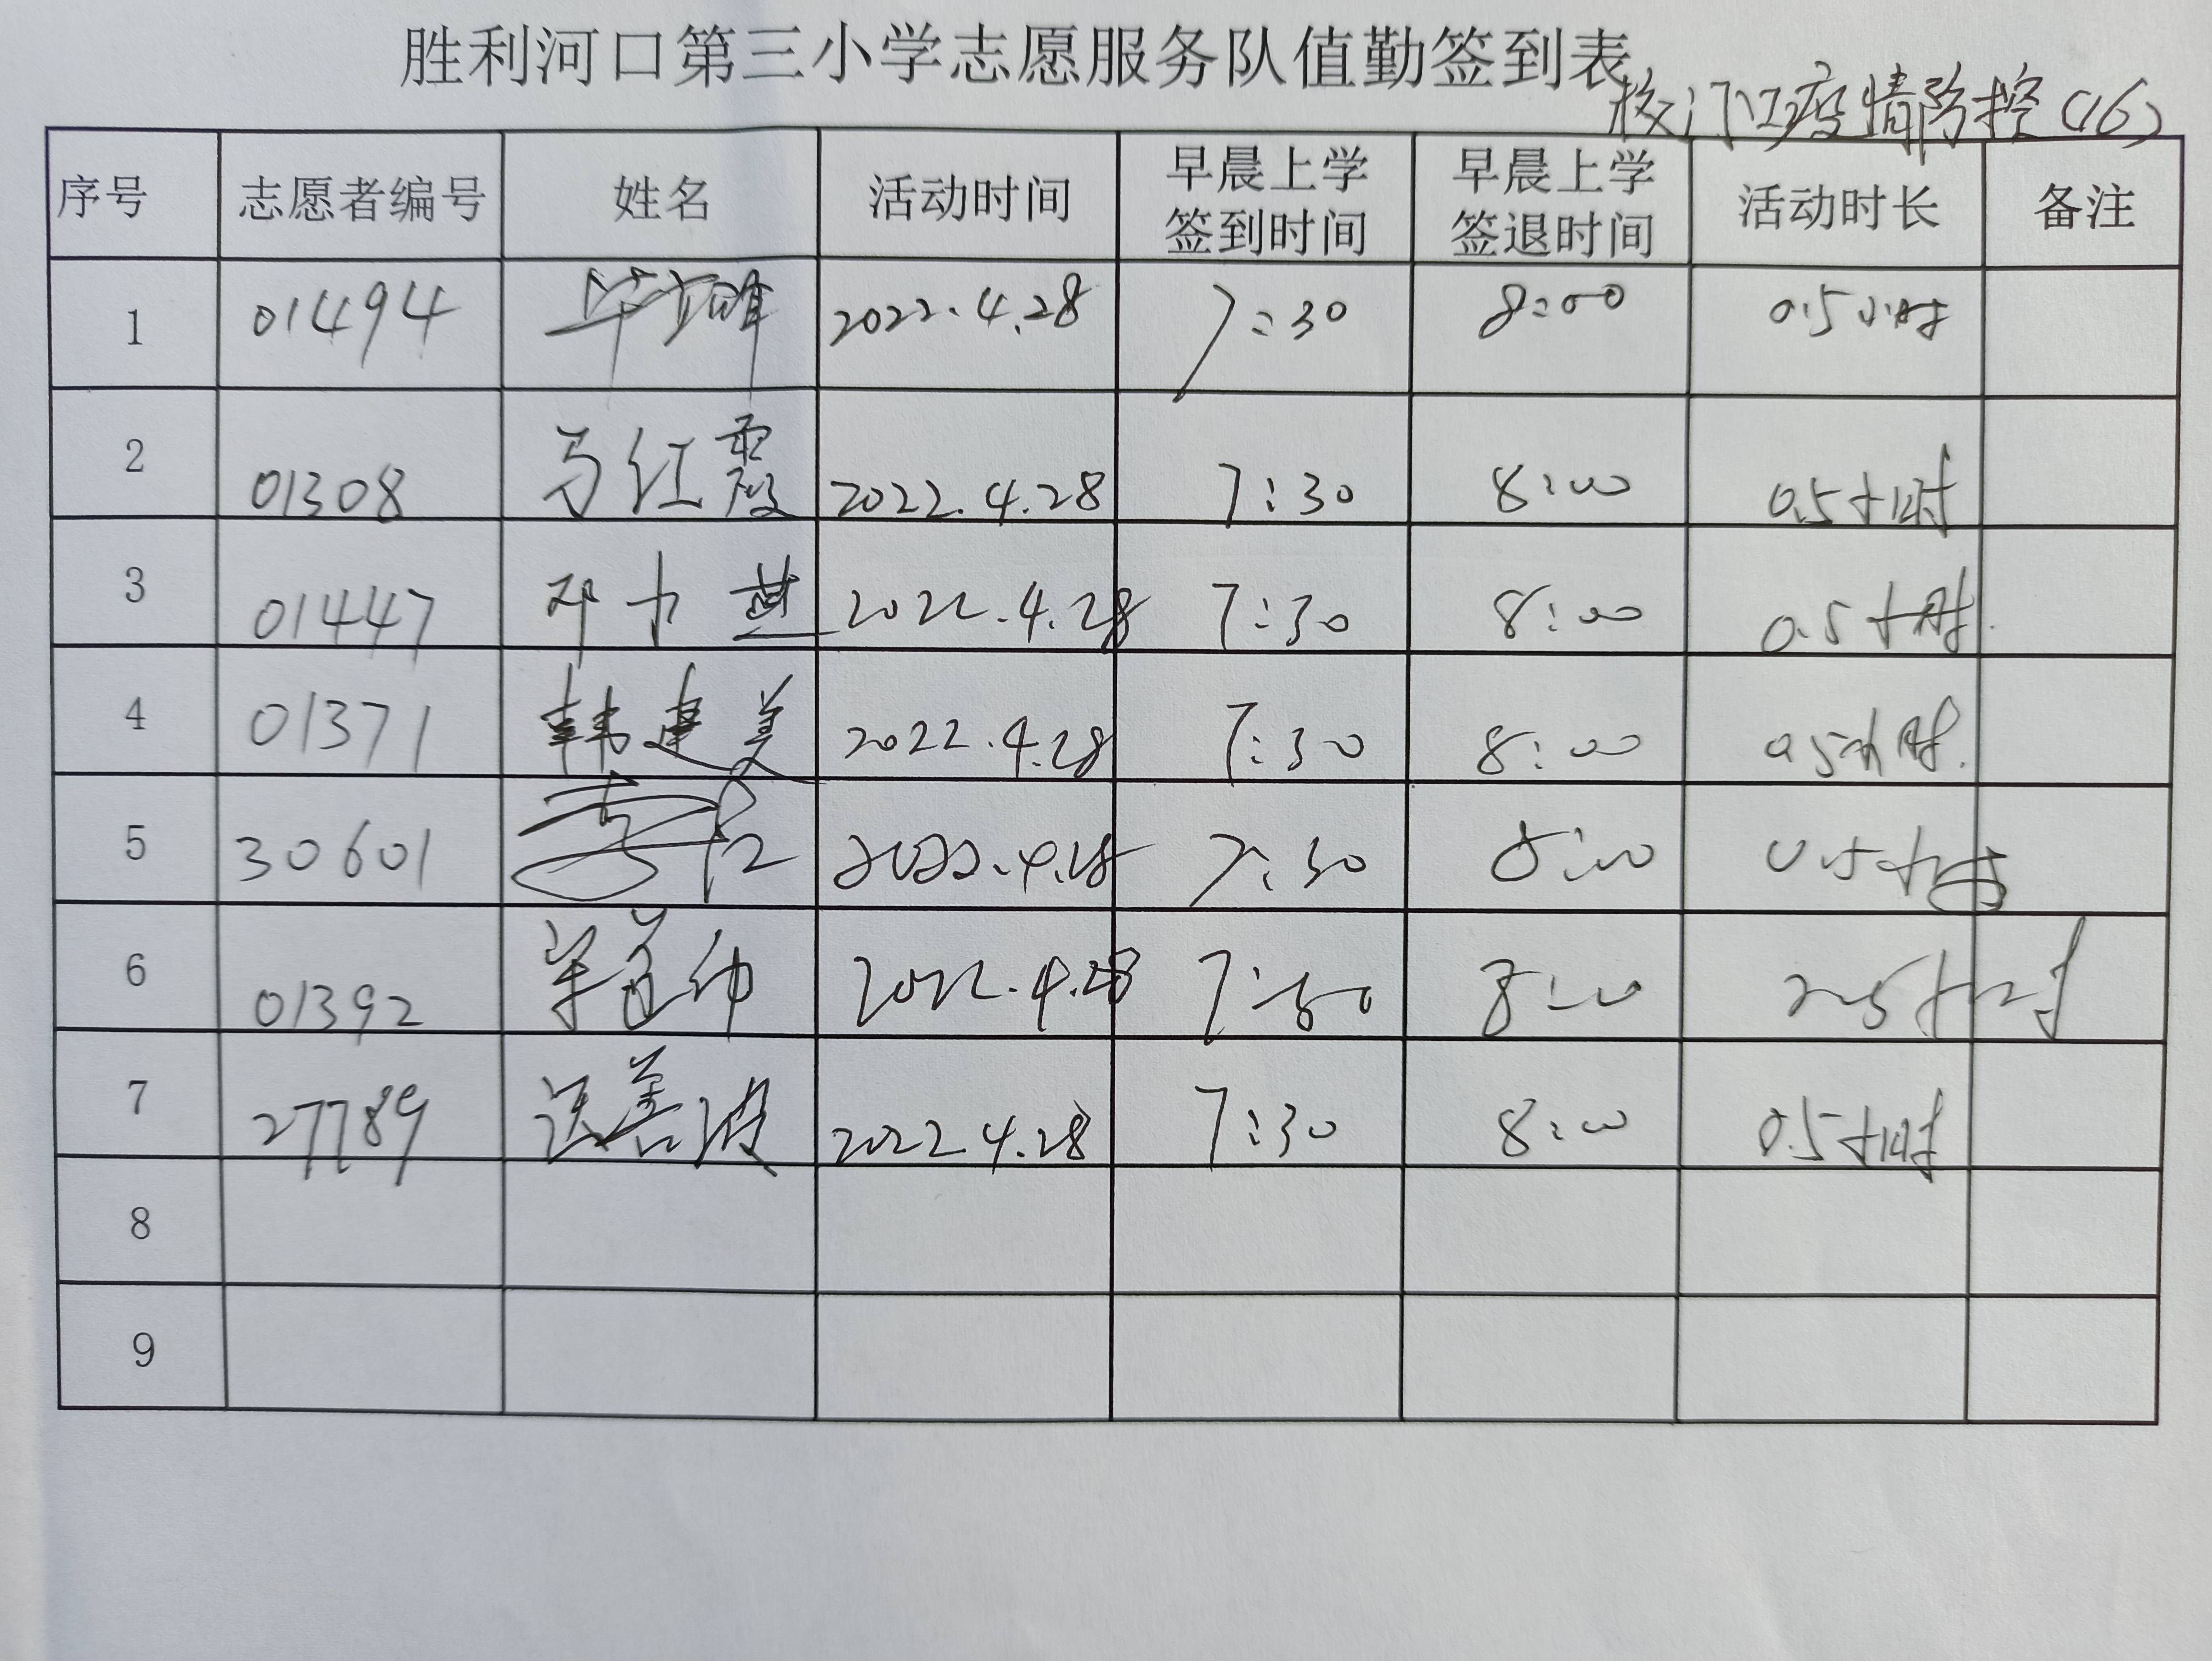 胜利河口第三小学志愿服务队值勤签到表
校门口疫情防控(16)
序号 志愿者编号 姓名 活动时间 早晨上学签到时间 早晨上学签退时间 活动时长 备注
1 01494 2022.4.28 7:30 8:00 0.5小时
2 01308 马红霞 2022.4.28 7:30 8:00 0.5小时
3 01447 邓 燕 2022.4.28 7:30 8:00 0.5小时
4 01371 韩建美 2022.4.28 7:30 8:00 0.5小时
5 30601 李 2022.4.28 7:30 8:00 0.5小时
6 01392 2022.4.28 7:30 8:00 小时
7 27789 波 2022.4.28 7:30 8:00 0.5小时
8
9